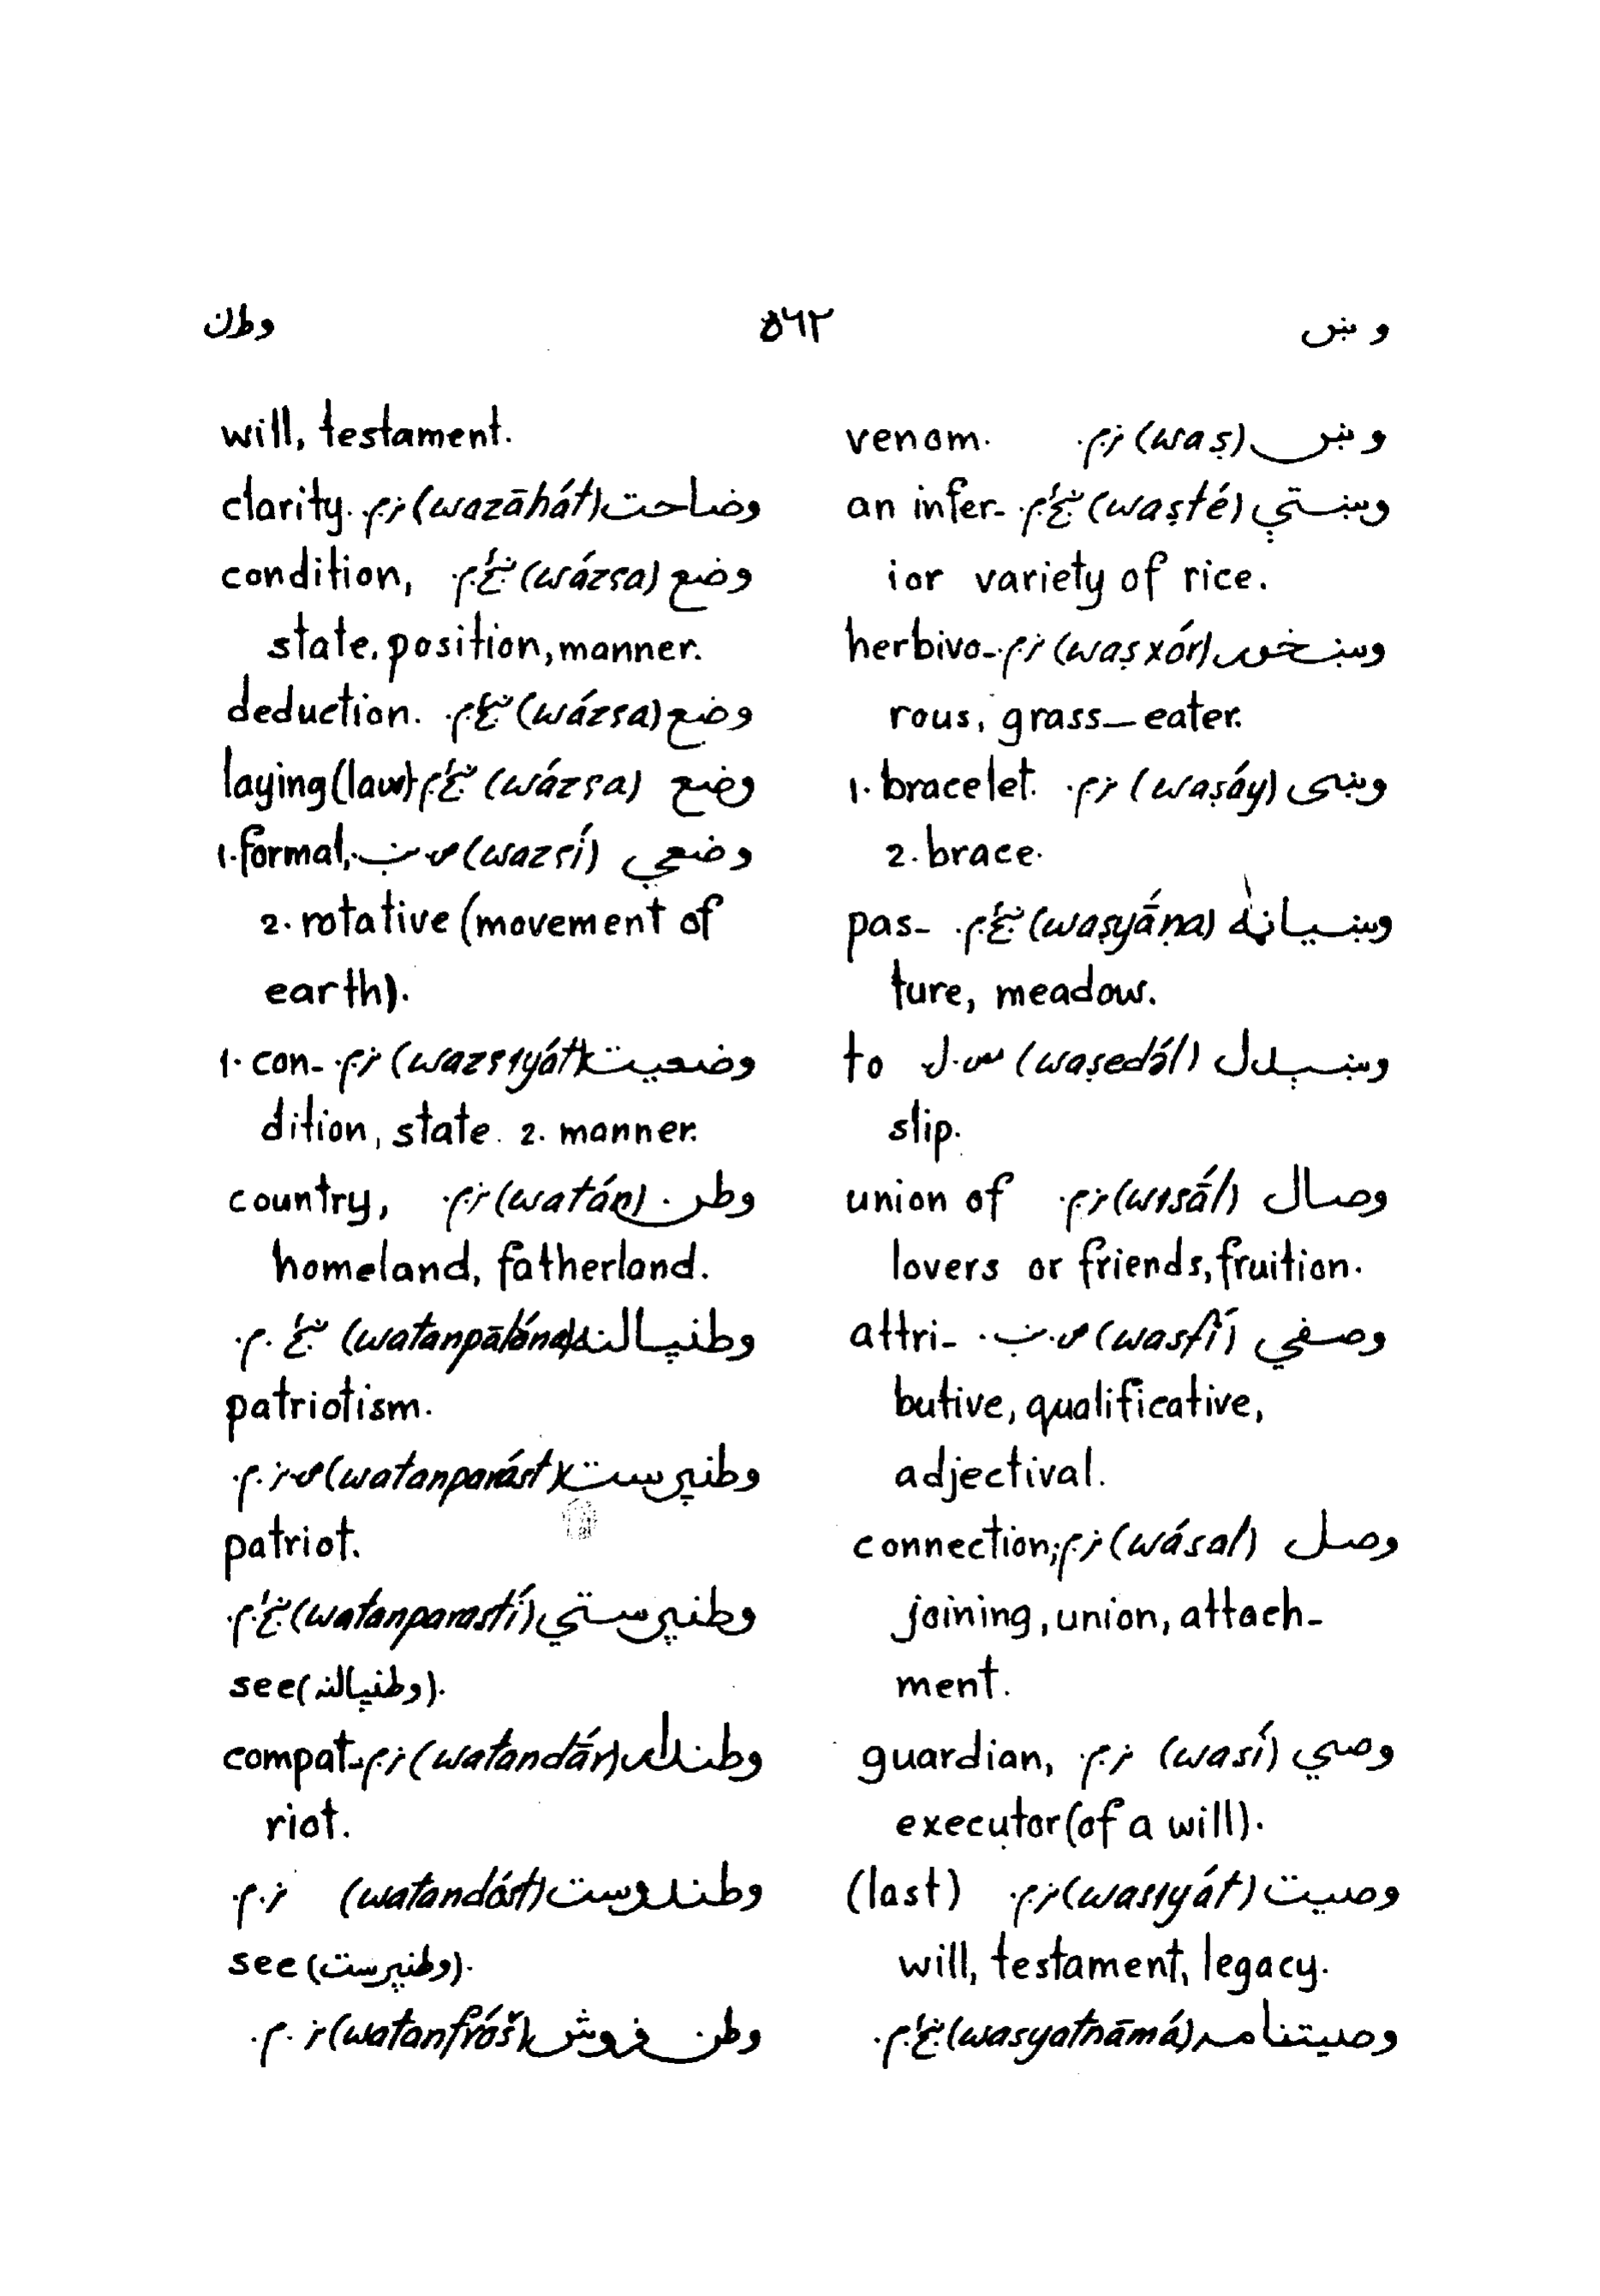 وښ ٥٦٢ وطن
وښ (waṣ) نر.م. venom.
وښتې (waṣté) ښځ.م. an infer-
ior variety of rice.
وښخور (waṣxór) نر.م. herbivo-
rous, grass-eater.
وښی (waṣáy) نر.م. 1. bracelet.
2. brace.
وښیاڼه (waṣyā́ṇa) ښځ.م. pas-
ture, meadow.
وښېدل (waṣedә́l) س.ل to
slip.
وصال (wɪsā́l) نر.م. union of
lovers or friends, fruition.
وصفي (wasfí) ص.ن. attri-
butive, qualificative,
adjectival.
وصل (wásal) نر.م. connection;
joining, union, attach-
ment.
وصي (wasí) نر.م. guardian,
executor (of a will).
وصیت (wasɪyát) نر.م. (last)
will, testament, legacy.
وصیتنامه (wasyatnāmá) ښځ.م.
will, testament.
وضاحت (wazāhát) نر.م. clarity.
وضع (wázʕa) ښځ.م. condition,
state, position, manner.
وضع (wázʕa) ښځ.م. deduction.
وضع (wázʕa) ښځ.م. laying (law)
وضعي (wazʕí) ص.ن. 1. formal,
2. rotative (movement of
earth).
وضعیت (wazʕɪyát) نر.م. 1. con-
dition, state. 2. manner.
وطن (watán) نر.م. country,
homeland, fatherland.
وطنپالنه (watanpālә́na) ښځ.م.
patriotism.
وطنپرست (watanparást) ص.نر.م.
patriot.
وطنپرستي (watanparastí) ښځ.م.
see (وطنپالنه).
وطندار (watandā́r) نر.م. compat-
riot.
وطندوست (watandóst) نر.م.
see (وطنپرست).
وطن فروش (watanfróš) نر.م.